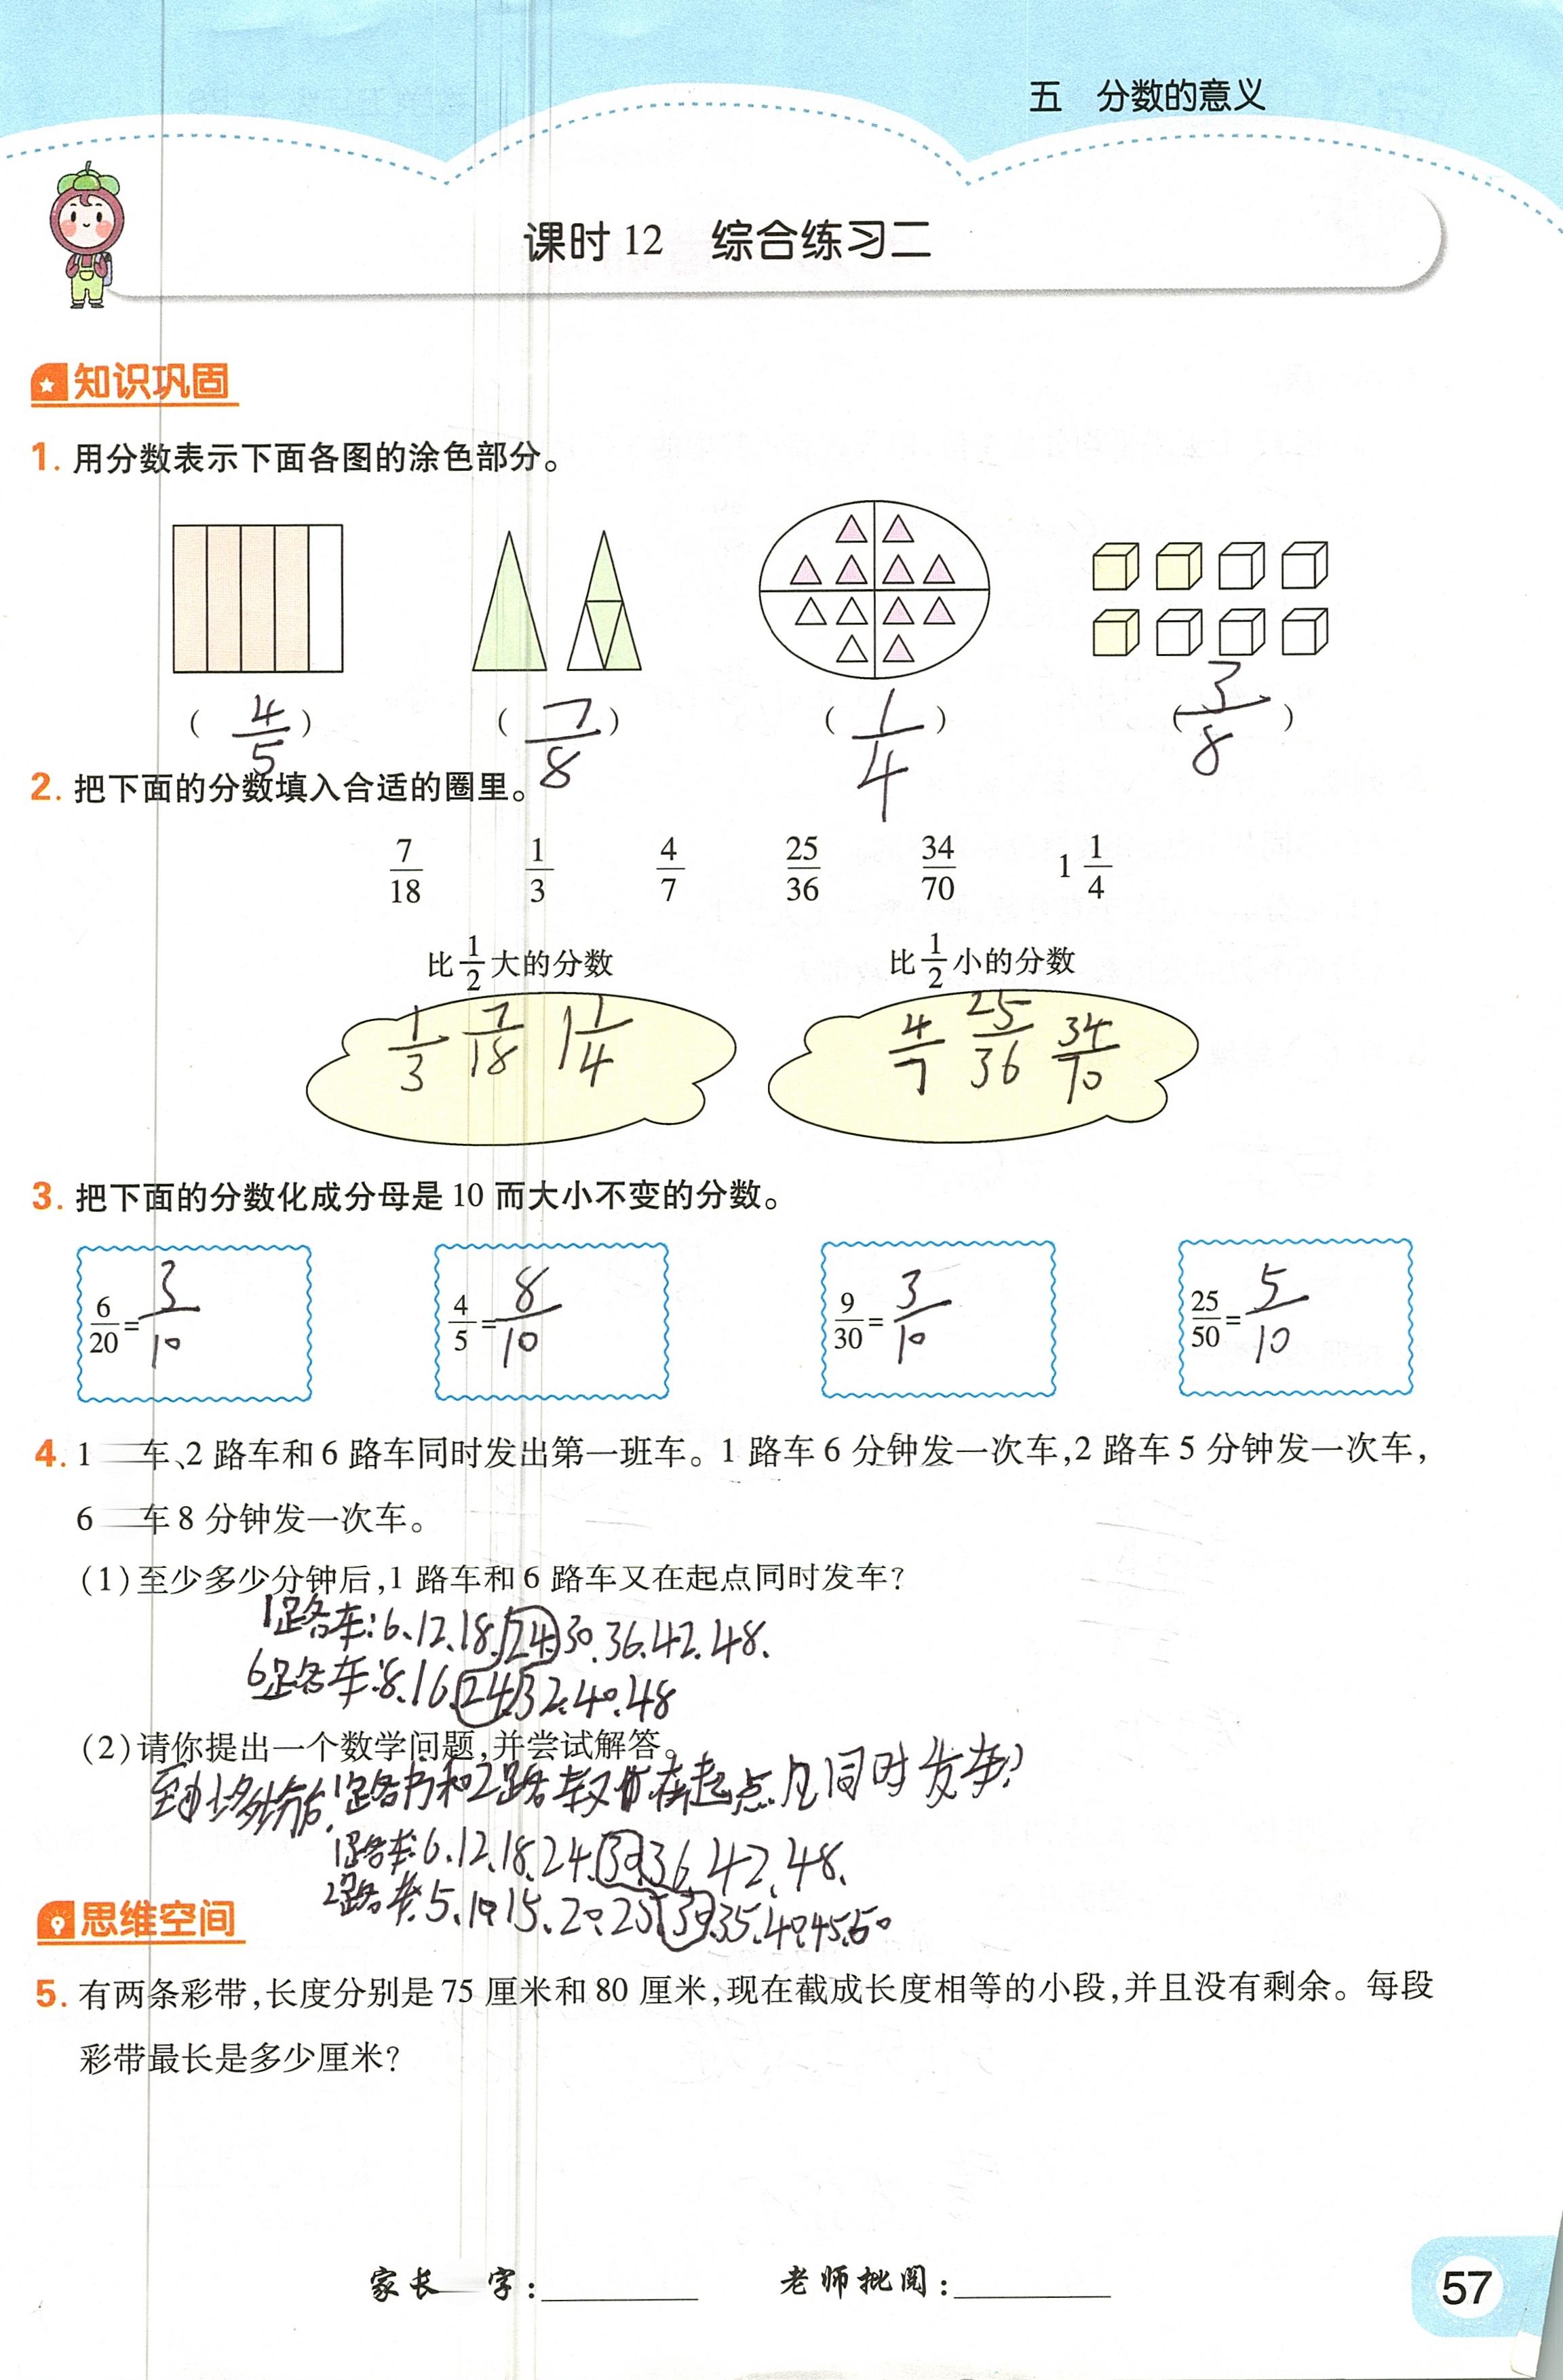 五 分数的意义
课时 12 综合练习二
知识巩固
1. 用分数表示下面各图的涂色部分。
( 4/5 ) ( 7/8 ) ( 1/4 ) ( 3/8 )
2. 把下面的分数填入合适的圈里。
7/18 1/3 4/7 25/36 34/70 1 1/4
比 1/2 大的分数 比 1/2 小的分数
1/3 7/18 1 1/4 4/7 25/36 34/70
3. 把下面的分数化成分母是 10 而大小不变的分数。
6/20 = 3/10 4/5 = 8/10 9/30 = 3/10 25/50 = 5/10
4. 1 车、2 路车和 6 路车同时发出第一班车。1 路车 6 分钟发一次车,2 路车 5 分钟发一次车,
6 车 8 分钟发一次车。
(1)至少多少分钟后,1 路车和 6 路车又在起点同时发车?
1路车:6、12、18、24、30、36、42、48、
6路车:8、16、24、32、40、48
(2)请你提出一个数学问题,并尝试解答。
1路 和2路车又 在起点 同时发车?
1路车:6、12、18、24、30、36、42、48、
2路车:5、10、15、20、25、30、35、40、45、50
思维空间
5. 有两条彩带,长度分别是 75 厘米和 80 厘米,现在截成长度相等的小段,并且没有剩余。每段
彩带最长是多少厘米?
家长 字: 老师批阅:
57